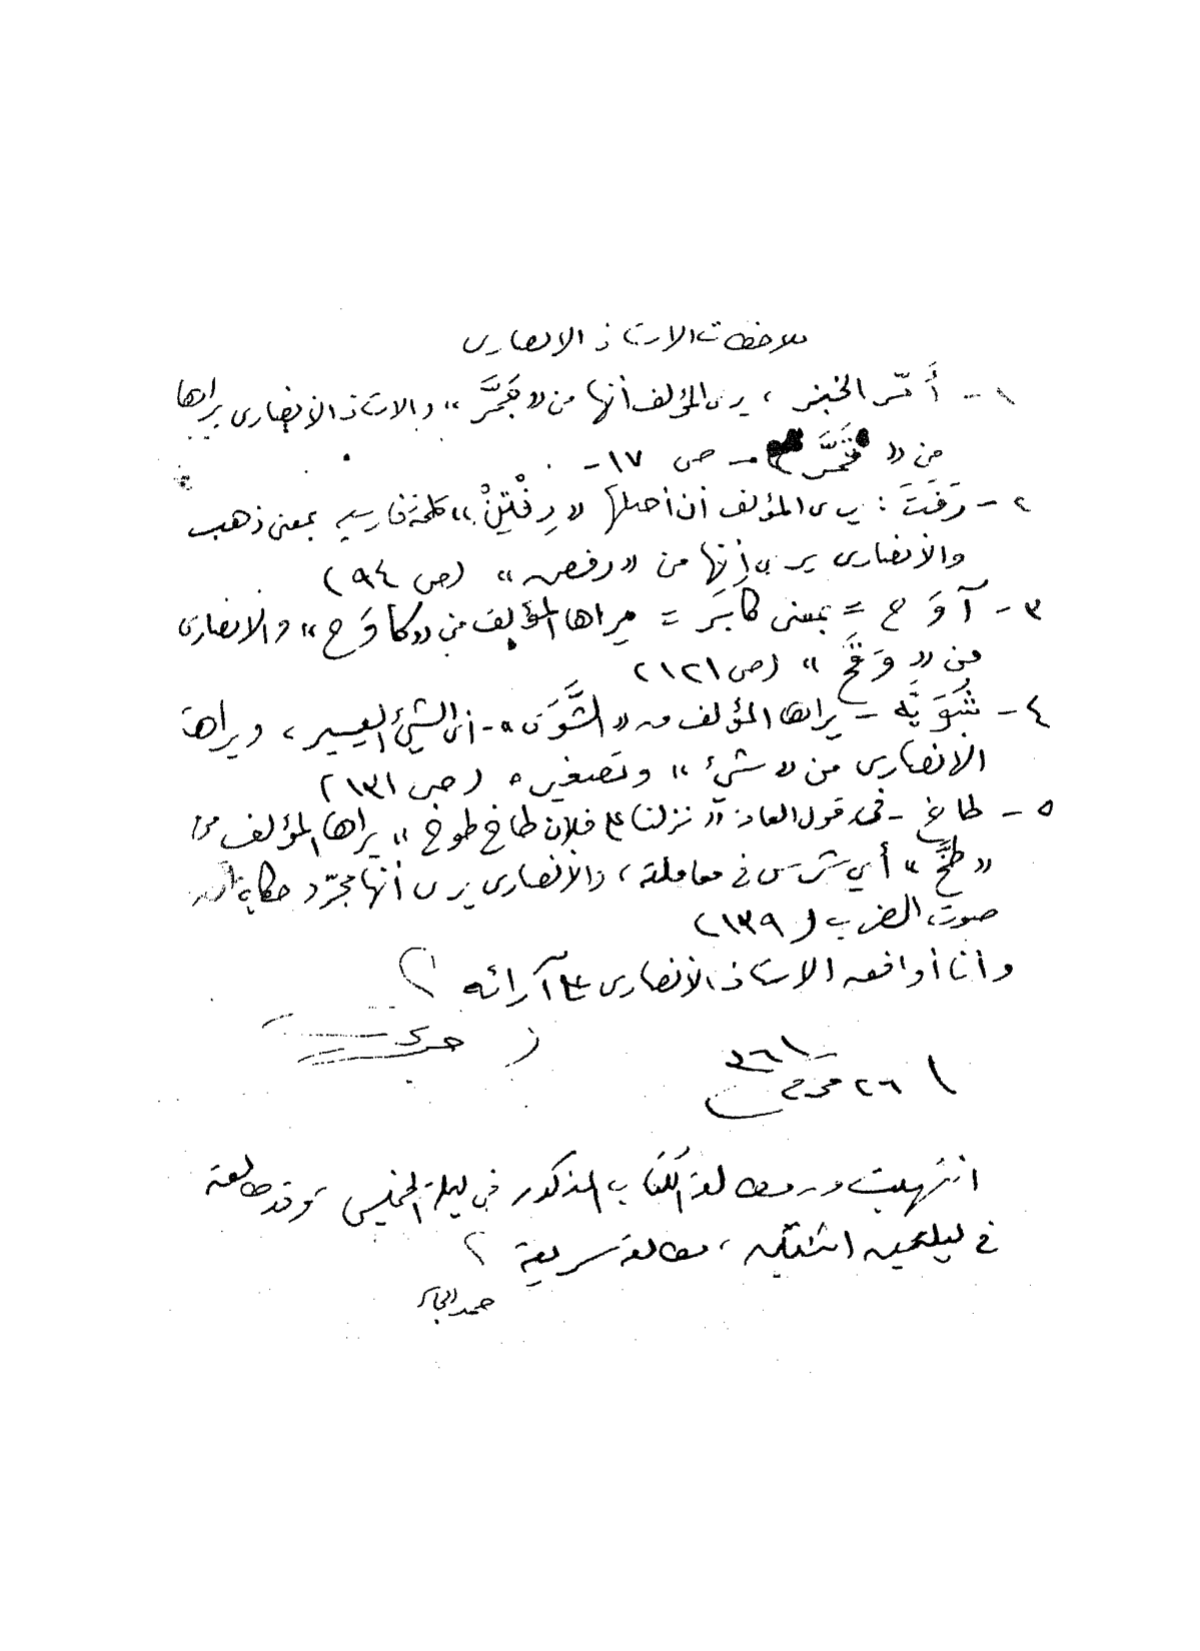 ملاحظات الاستاذ الانصارى
١- أَمّر الخبز ، يرى المؤلف أنها من « جَمَّرَ » والاستاذ الأنصارى يراها
من « قَمَّرَ » – ص ١٧ –
٢- رَفَتَ : يرى المؤلف أن أصلها « رِفْتِنْ » كلمة فارسية بمعنى ذهب
والأنصارى يرى أنها من « رفض » (ص ٩٤)
٣- آوَح = بمعنى كابَر = يراها المؤلف من « كاوَح » والانصارى
من « وَقَح » (ص ١٢١)
٤- شُوَيَّه – يراها المؤلف من « الشَّوَى » – أى الشيئ اليسير ، ويراها
الانصارى من « شيئ » وتصغيره (ص ١٣١)
٥- طاخ – فى قول العامة « نزلنا على فلان طاخ طوخ » يراها المؤلف من
« طخَّ » أي شرس في معاملته ، والأنصارى يرى أنها مجرّد حكاية
صوت الضرب (١٣٩)
وأنا أوافق الاستاذ الأنصارى على آرائه
٢٦ محرم
انتهيت من مطالعة الكتاب المذكور في ليلة الخميس وقد طالعته
في ليلتين اثنتين ، مطالعة سريعة
حمد الجاسر